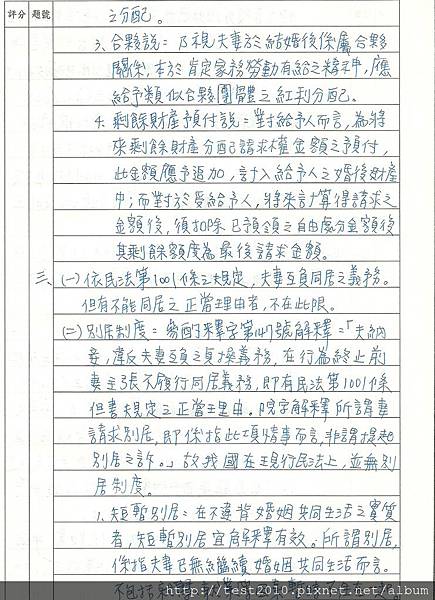 評分 題號
之分配。
3、合夥說：乃視夫妻於結婚後係屬合夥
關係，本於肯定家務勞動有給之精神，應
給予類似合夥團體之紅利分配。
4、剩餘財產預付說：對給予人而言，為將
來剩餘財產分配請求權金額之預付，
此金額應予追加，計入給予人之婚後財產
中；而對於受給予人，將來計算得請求之
金額後，須扣除已預領之自由處分金額後
其剩餘額度為最後請求金額。
三、(一)依民法第1001條之規定，夫妻互負同居之義務。
但有不能同居之正當理由者，不在此限。
(二)別居制度：參酌釋字第147號解釋：「夫納
妾，違反夫妻互負之貞操義務，在行為終止前
妻主張不願行同居義務，即有民法第1001條
但書規定之正當理由。院字解釋所謂妻
請求別居，即係指此項情事而言，非謂提起
別居之訴。」故我國在現行民法上，並無別
居制度。
1、短暫別居：在不違背婚姻共同生活之實質
者，短暫別居宜解釋有效。所謂別居，
係指夫妻已無繼續婚姻共同生活而言。
不包括
http://test2010.pixnet.net/album